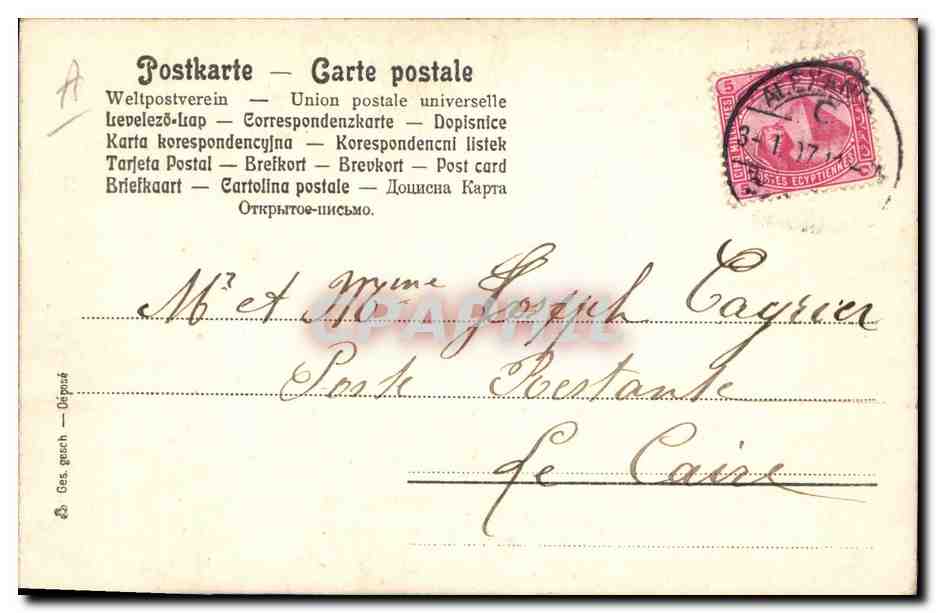 A
Postkarte — Carte postale
Weltpostverein — Union postale universelle
Levelező-Lap — Correspondenzkarte — Dopisnice
Karta korespondencyjna — Korespondencni listek
Tarjeta Postal — Brefkort — Brevkort — Post card
Briefkaart — Cartolina postale — Доцисна Карта
Открытое-письмо.
5
MILLIEMES
POSTES EGYPTIENNES
ALEXAN
C
Mr et Mme Joseph Cagrier
CPARTILL
Poste Restante
Le Caire
Ges. gesch — Déposé